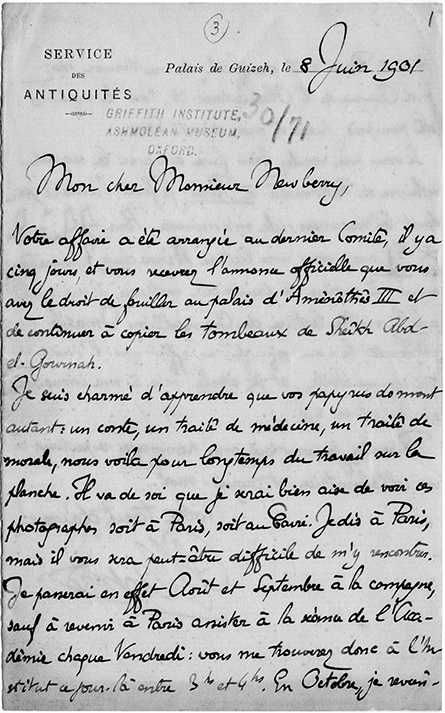 3
1
SERVICE
DES
ANTIQUITÉS
Palais de Guizeh, le 8 Juin 1901
GRIFFITH INSTITUTE,
ASHMOLEAN MUSEUM,
OXFORD.
30/71
Mon cher Monsieur Newberry,
Votre affaire a été arrangée au dernier Comité, il y a
cinq jours, et vous recevrez l'annonce officielle que vous
avez le droit de fouiller au palais d'Aménôthès III et
de continuer à copier les tombeaux de Sheikh Abd-
el-Gournah.
Je suis charmé d'apprendre que vos papyrus donnent
autant: un conte, un traité de médecine, un traité de
morale, nous voilà pour longtemps du travail sur la
planche. Il va de soi que je serai bien aise de voir ces
photographes soit à Paris, soit au Caire. Je dis à Paris,
mais il vous sera peut-être difficile de m'y rencontrer.
Je passerai en effet Août et Septembre à la campagne,
sauf à revenir à Paris assister à la séance de l'Aca-
démie chaque Vendredi: vous me trouverez donc à l'In-
stitut ce jour-là entre 3hs et 4hs. En Octobre, je revien-